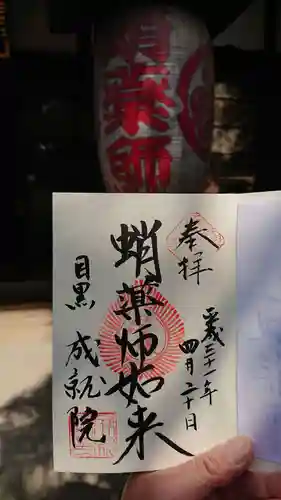 蛸薬師
奉拝
平成三十一年
四月二十日
蛸薬師如来
目黒 成就院